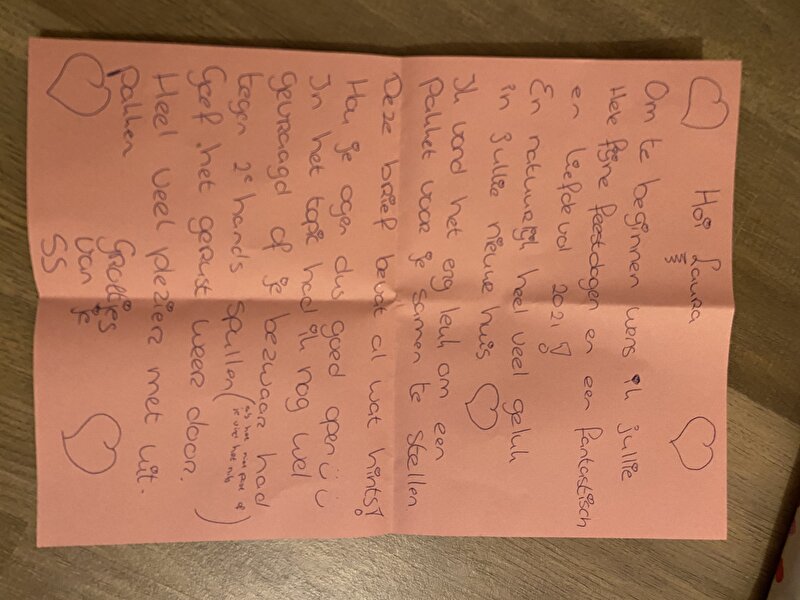 Hoi Laura
Om te beginnen wens ik jullie
Hele fijne feestdagen en een fantastisch
en liefdevol 2021!
En natuurlijk heel veel geluk
in jullie nieuwe huis
Ik vond het erg leuk om een
Pakket voor je samen te stellen
Deze brief bevat al wat hints!
Hou je ogen dus goed open
In het topic had ik nog wel
gevraagd of je bezwaar had
tegen 2e hands spullen (als het niet past of
je vind het niks)
Geef het gerust weer door.
Heel veel plezier met uit-
pakken
Groetjes
van je
SS